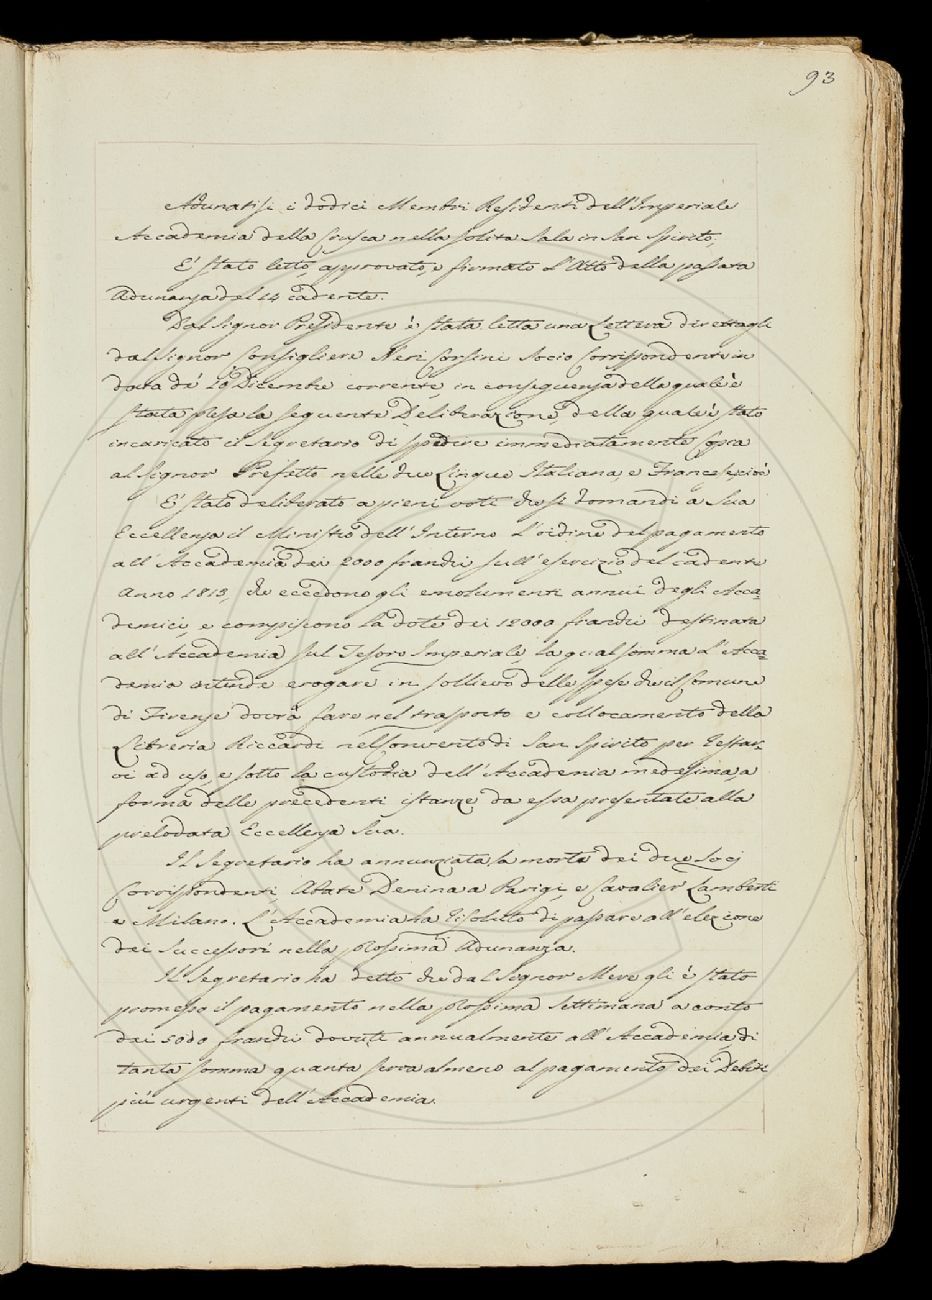 93
Adunatisi i dodici Membri Residenti dell'Imperiale
Accademia della Crusca nella solita Sala in San Spirito;
E' stato letto, approvato, e firmato l'Atto della passata
Adunanza del 14 cadente.
Dal Signor Presidente è stata letta una Lettera direttagli
dal Signor Consigliere Neri Corsini Socio Corrispondente in
data de' 20 Dicembre corrente, in conseguenza della quale è
stata presa la seguente Deliberazione, della quale è stato
incaricato il Segretario di spedire immediatamente Copia
al Signor Prefetto nelle due Lingue Italiana, e Francese, cioè
E' stato deliberato a pieni voti che si domandi a Sua
Eccellenza il Ministro dell'Interno l'ordine del pagamento
all'Accademia dei 2000 franchi sull'esercizio del cadente
Anno 1813, che eccedono gli emolumenti annui degli Acca=
demici, e compiscono la dote dei 12000 franchi destinata
all'Accademia sul Tesoro Imperiale, la qual somma l'Acca=
demia intende erogare in sollievo delle spese che il Comune
di Firenze dovrà fare nel trasporto e collocamento della
Libreria Riccardi nel Convento di San Spirito per restar=
vi ad uso, e sotto la custodia dell'Accademia medesima, a
forma delle precedenti istanze da essa presentate alla
prelodata Eccellenza Sua.
Il Segretario ha annunziata la morte dei due Socj
Corrispondenti, Abate Denina a Parigi, e Cavalier Lamberti
a Milano. L'Accademia ha risoluto di passare all'elezione
dei Successori nella prossima Adunanza.
Il Segretario ha detto che dal Signor Mere gli è stato
promesso il pagamento nella prossima settimana a conto
dei 5000 franchi dovuti annualmente all'Accademia, di
tanta somma quanta serva almeno al pagamento dei Debiti
più urgenti dell'Accademia.